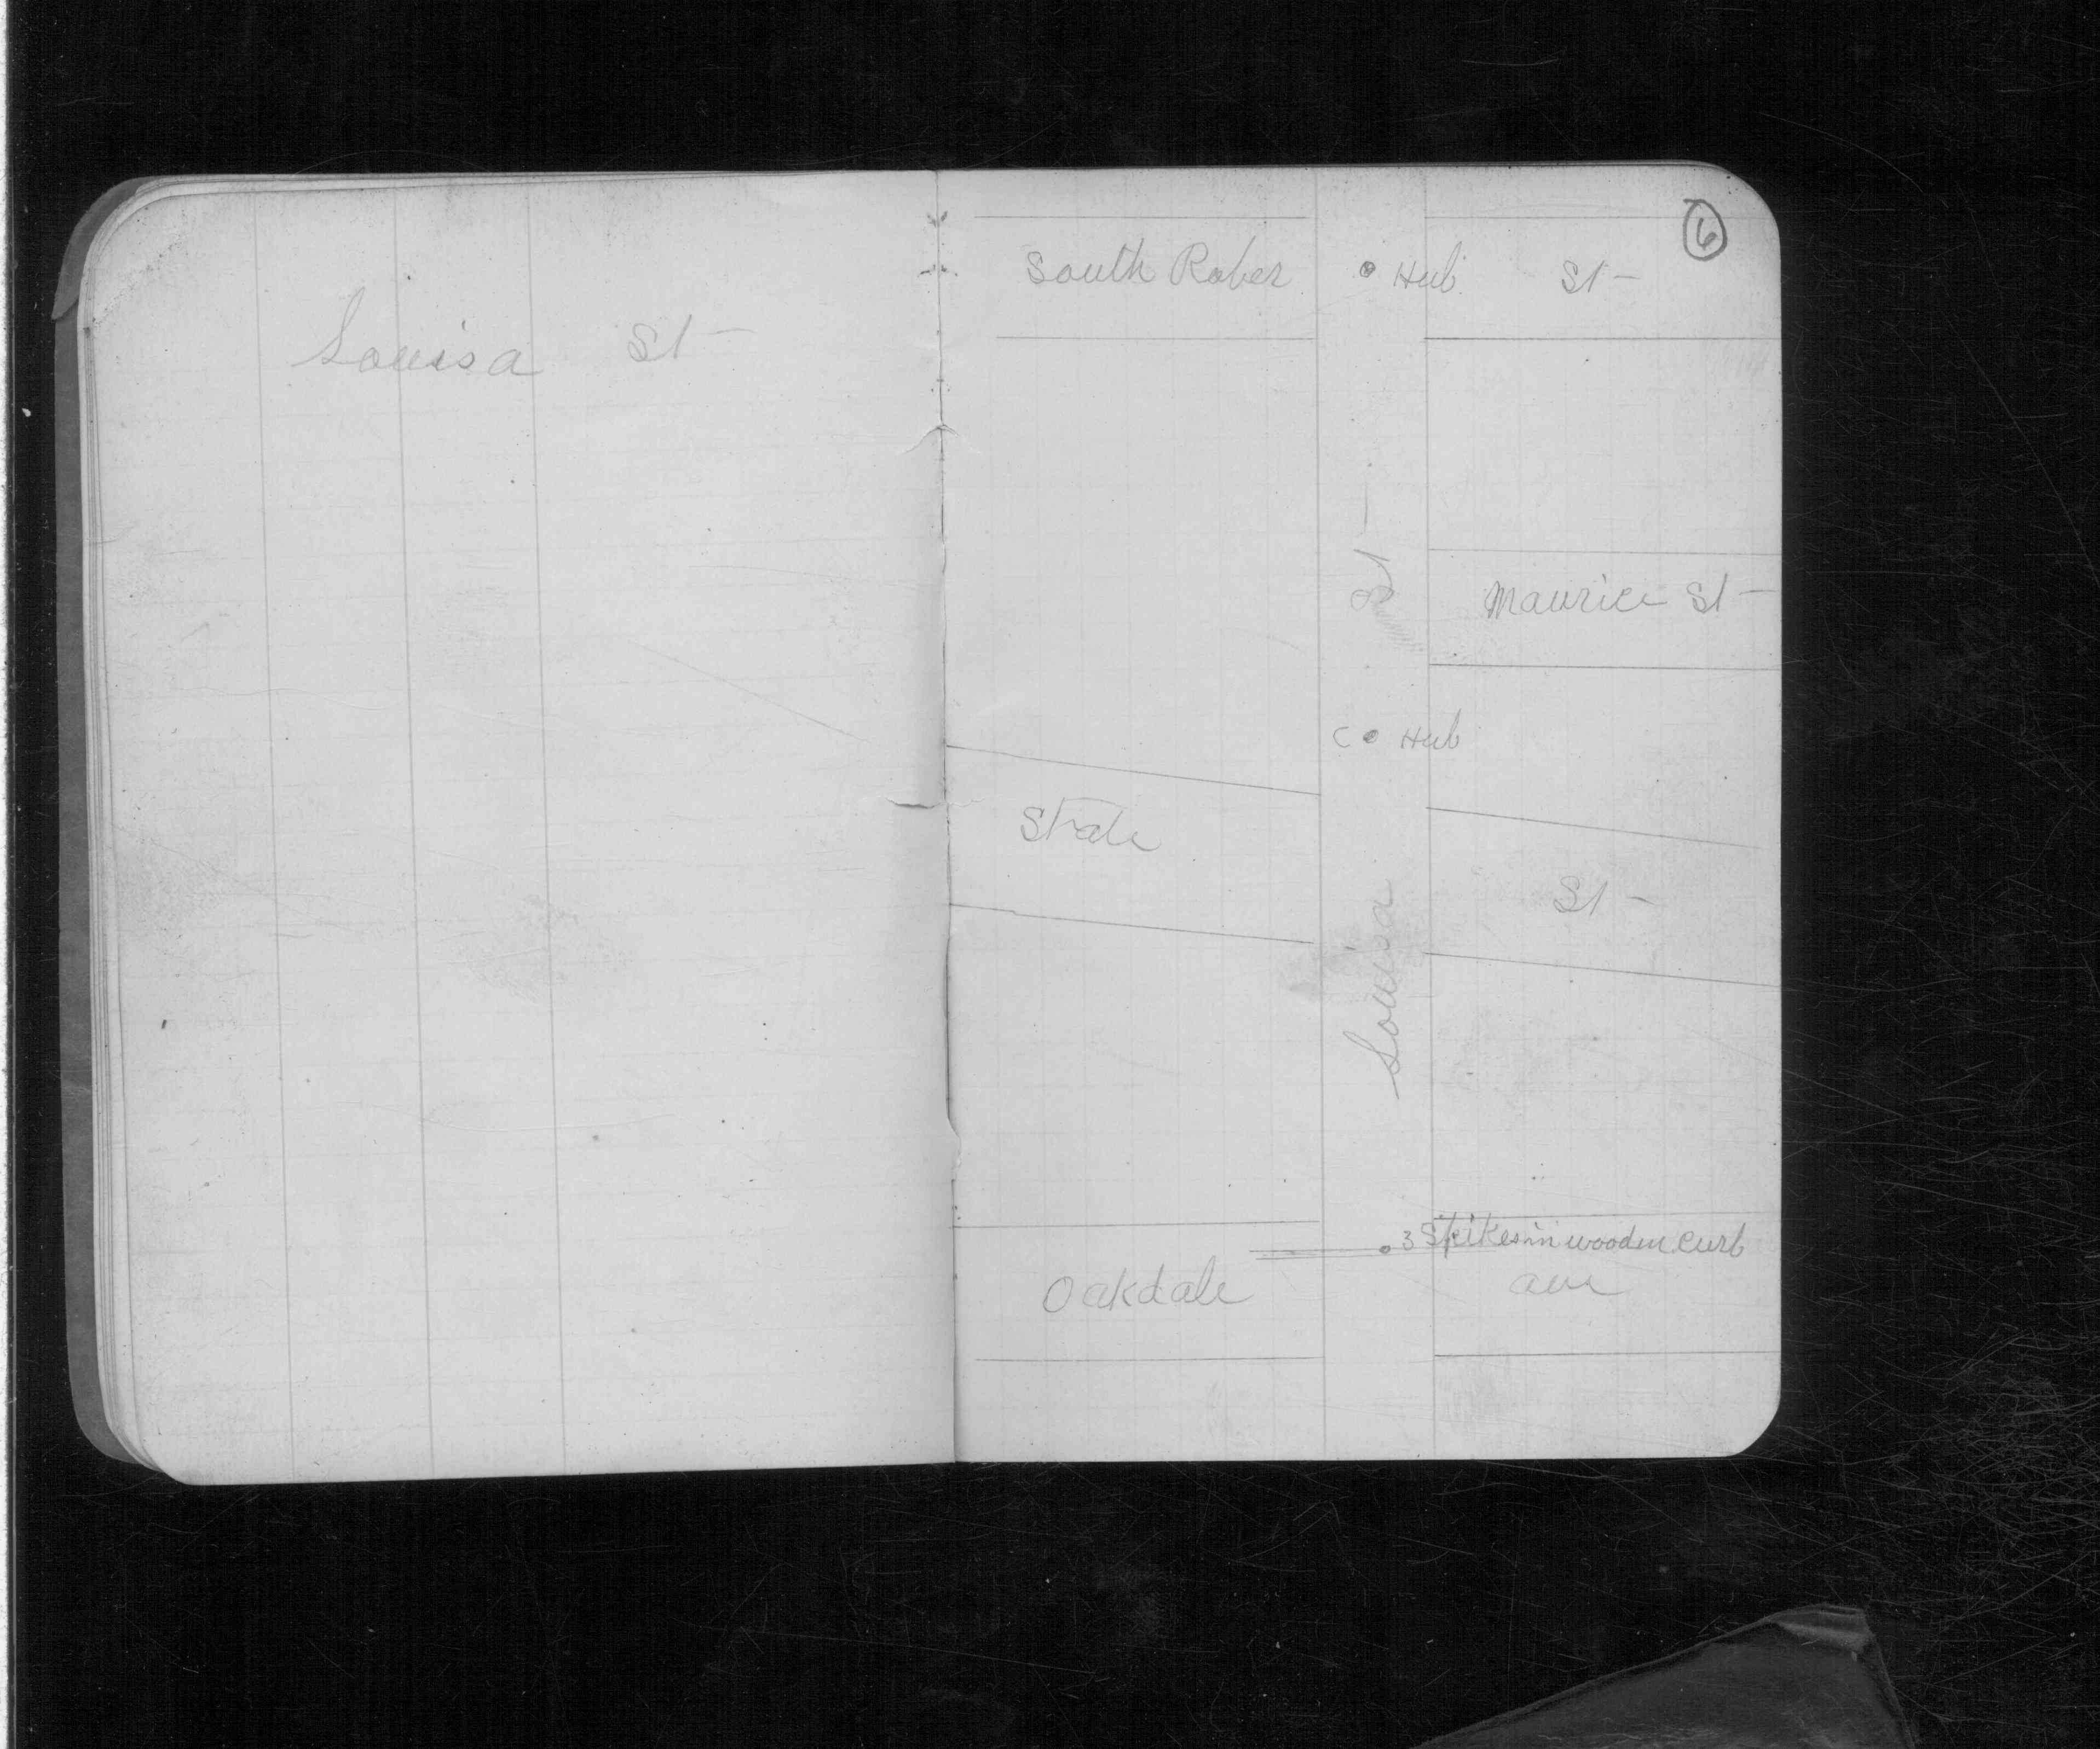 Louisa St
6
South Rober • Hub St
St
Maurice St
C • Hub
State
St
Louisa
3 Spikes in wooden curb
Oakdale ave